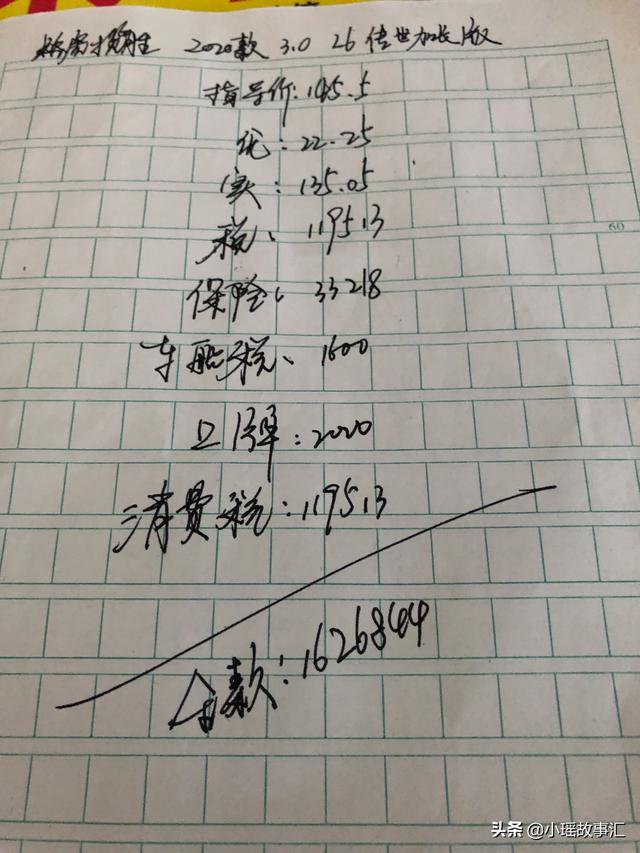 路虎揽胜 2020款 3.0 26 传世加长版
指导价:
优: 22.25
实: 135.05
税: 119513
60
保险: 33218
车船税: 1600
上牌: 2020
消费税: 119513
全款: 1626844
头条 @小瑶故事汇